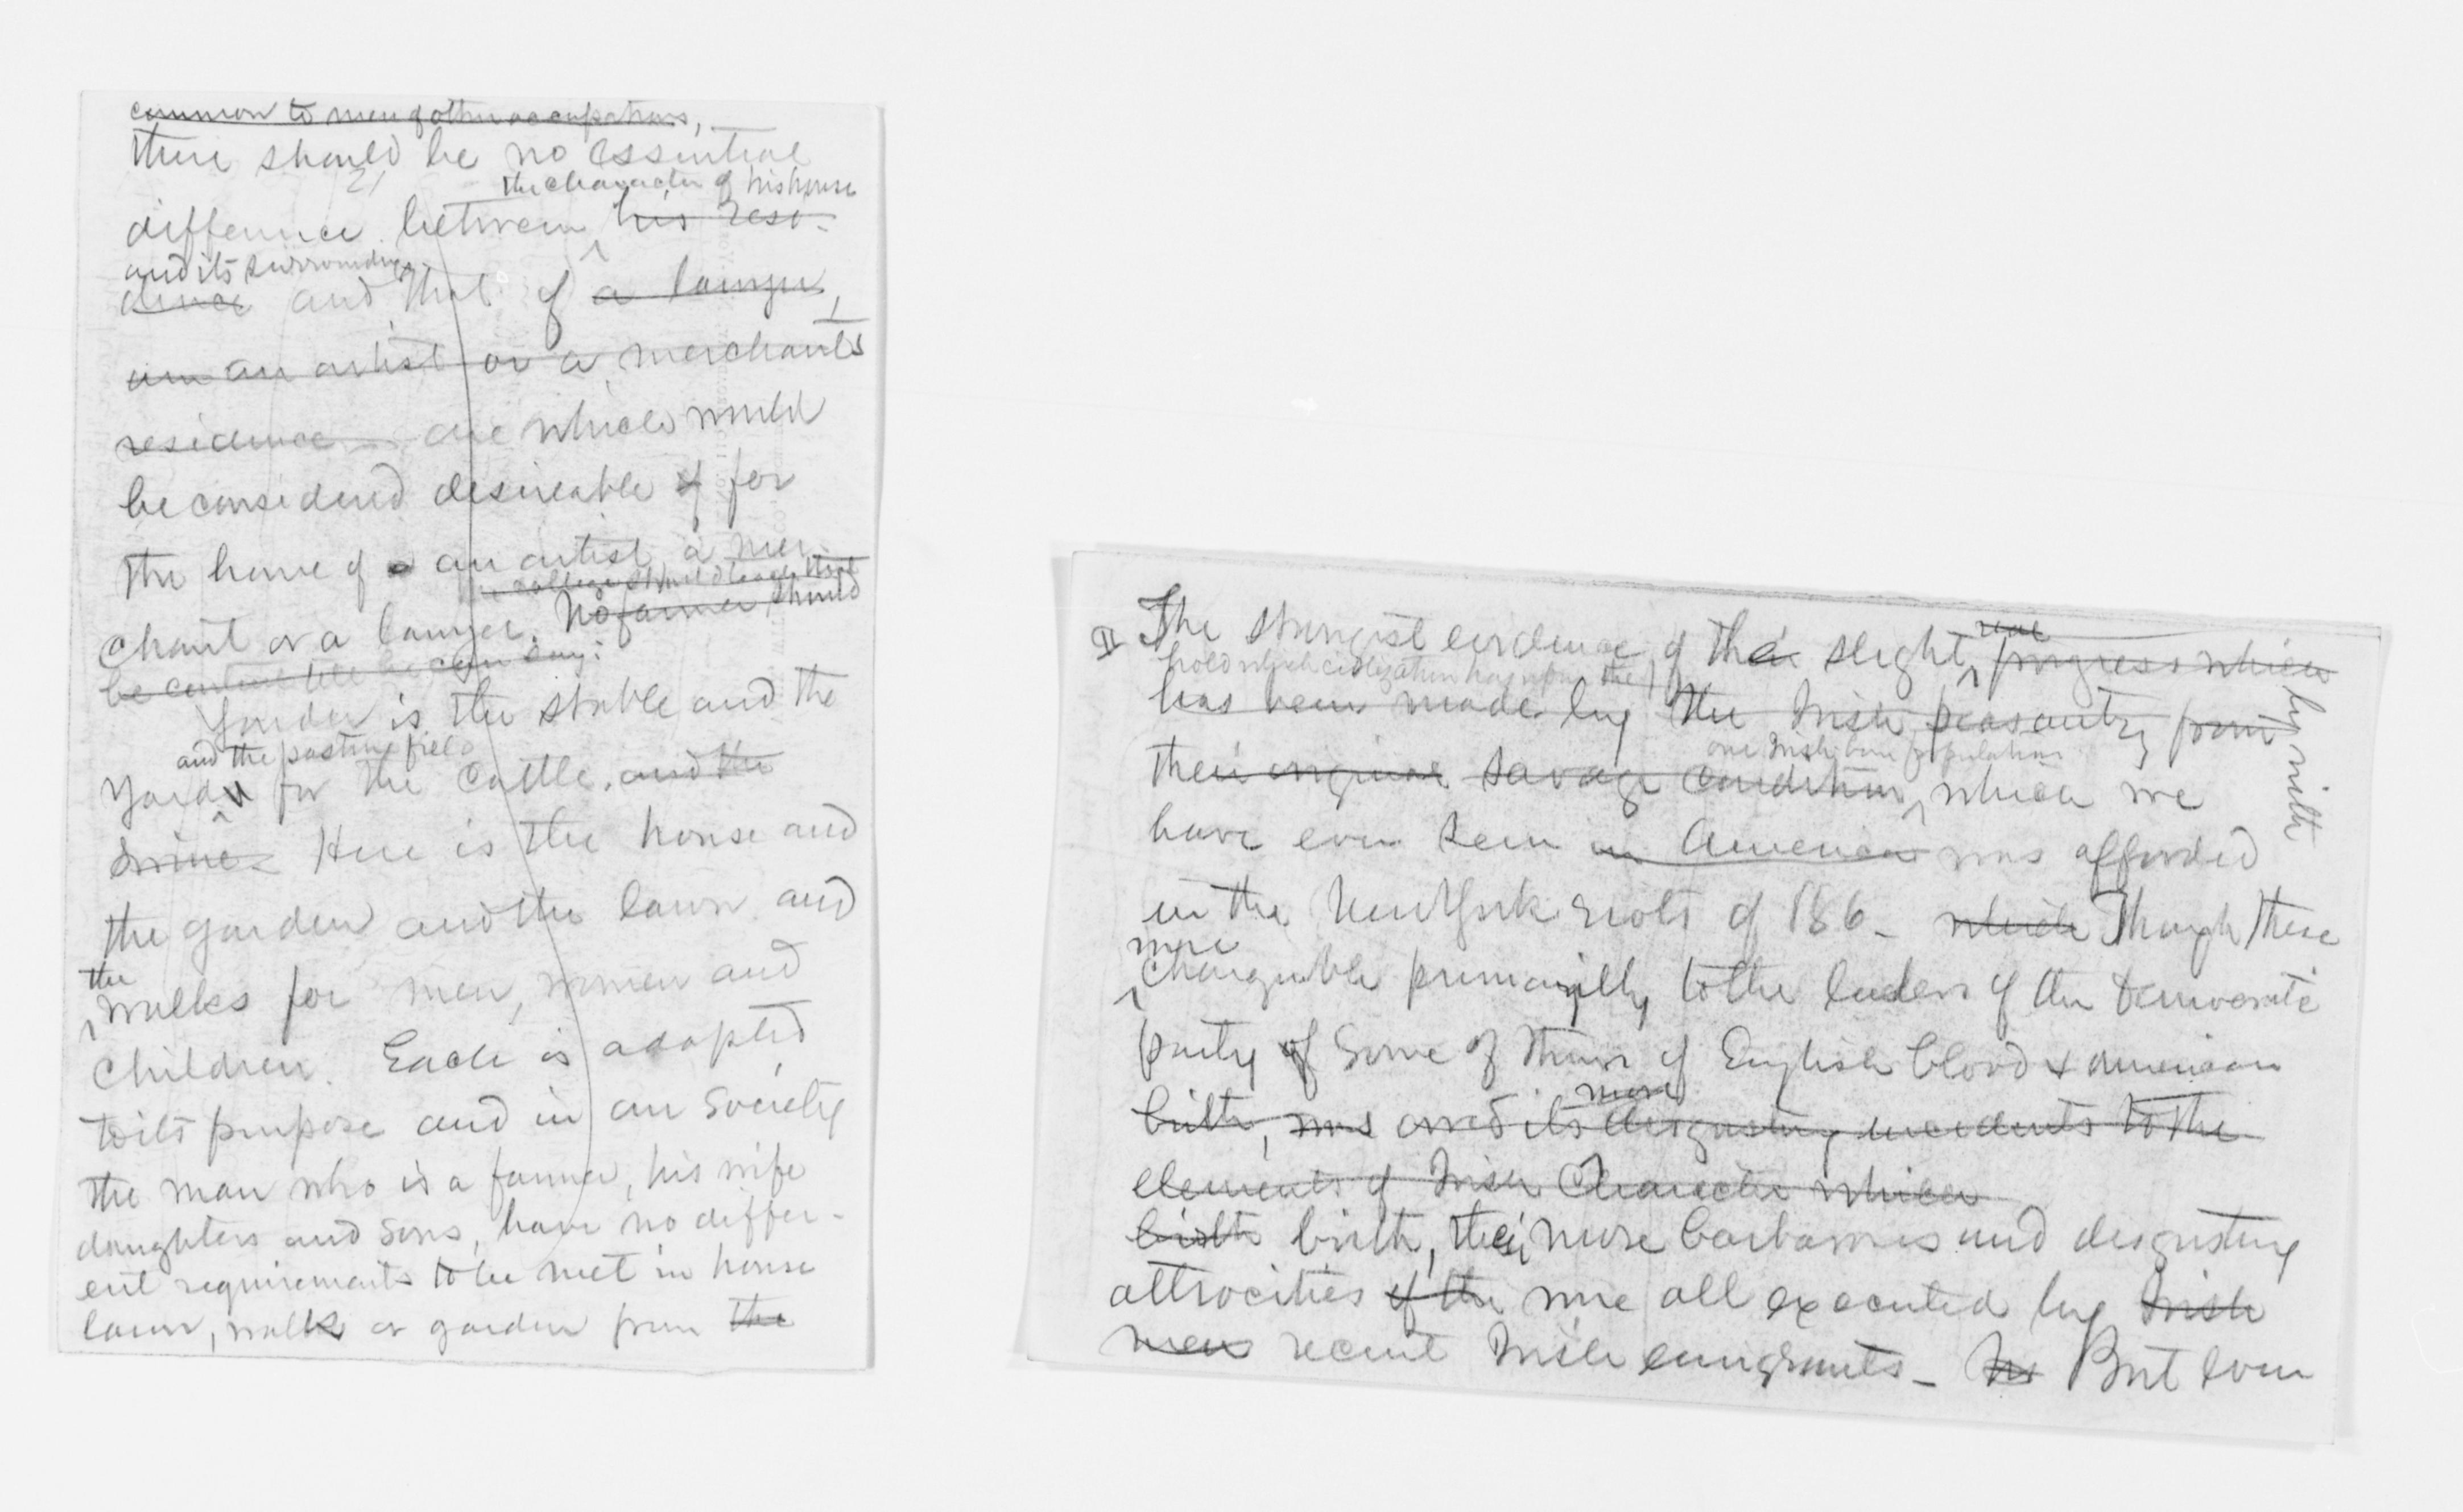 common to men of other occupations,
there should be no essential
the character of his house
difference between his resi-
and its surroundings
dence and that of a lawyer,
an artist or a merchants
residence - one which would
be considered desireable for
the home of an artist a mer-
college should teach that
chant or a lawyer. No farmer should
be
Yonder is the stable and the
and the pasture field
Yard for the cattle. and the
swine. Here is the house and
the garden and the lawn and
the
walks for men, women and
children. Each is adapted
to its purpose and in our society
the man who is a farmer, his wife
daughters and sons, have no differ-
ent requirements to be met in house
lawn, walk or garden from the
The strongest evidence of the slight real progress which
hold which civilization has upon the
has been made by the Irish peasantry from
our Irish born population
their original savage condition, which we
have ever seen in America was afforded
in the New York riots of 186- which Though these
were
chargeable primarily to the leaders of the democratic
party some of them of English blood & American
more
birth, was owed its disgusting incidents to the
elements of Irish Character which
birth birth, their more barbarous and disgusting
attrocities of the were all executed by Irish
men recent Irish emigrants - But even